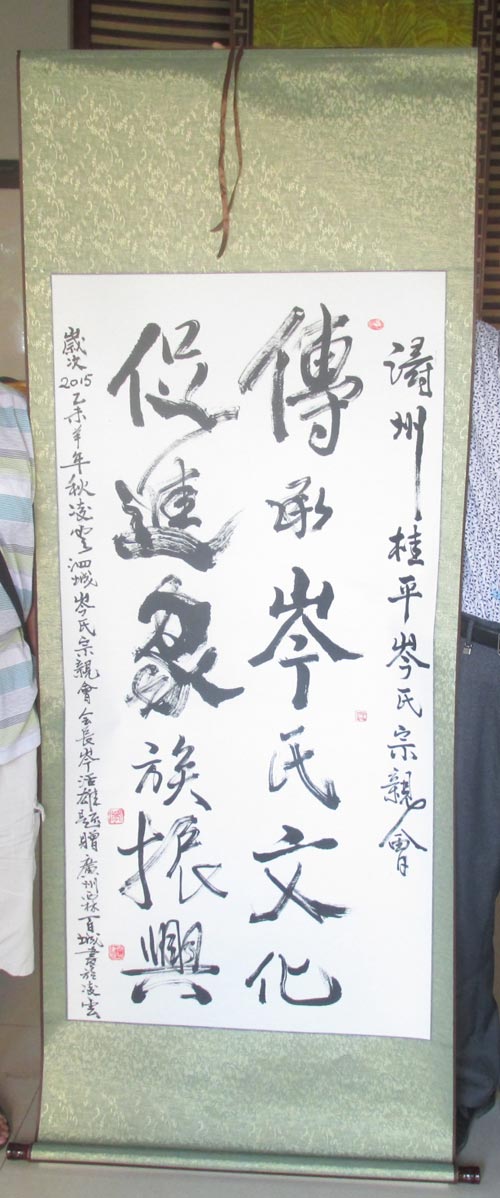 潯州桂平岑氏宗親會
傳承岑氏文化
促進家族振興
歲次2015乙未羊年秋凌雲泗城岑氏宗親會會長岑活雄題贈廣州霖百城書於凌雲